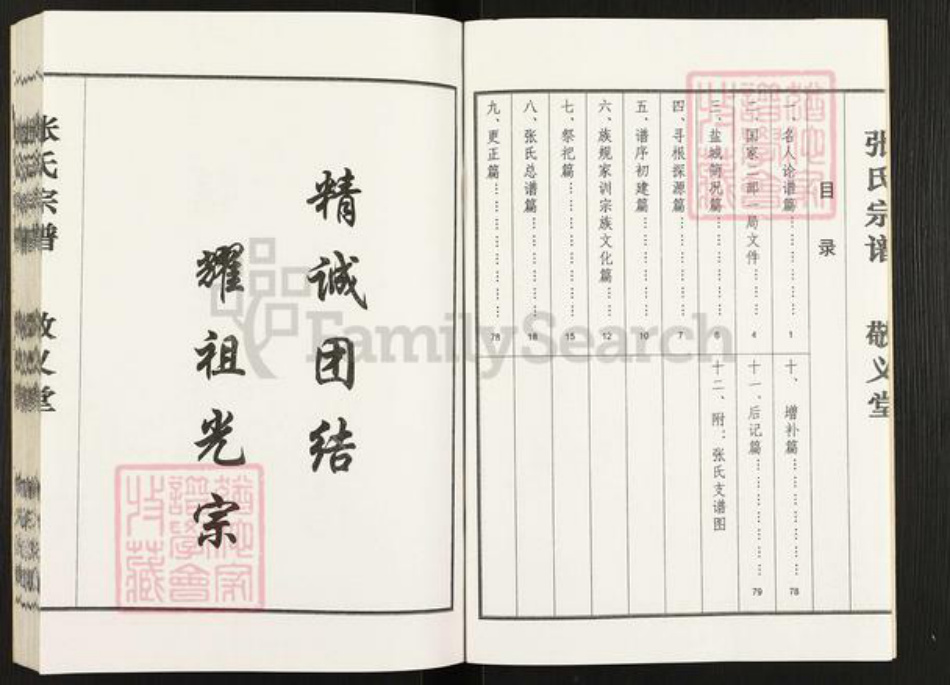 张氏宗谱 敬义堂
目录
一、名人论谱篇………………1
二、国家二部一局文件………4
三、盐城简况篇………………6
四、寻根探源篇………………7
五、谱序初建篇………………10
六、族规家训宗族文化篇……12
七、祭祀篇……………………15
八、张氏总谱篇………………18
九、更正篇……………………78
十、增补篇……………………78
十一、后记篇…………………79
十二、附：张氏支谱图
精诚团结
耀祖光宗
张氏宗谱 敬义堂
FamilySearch